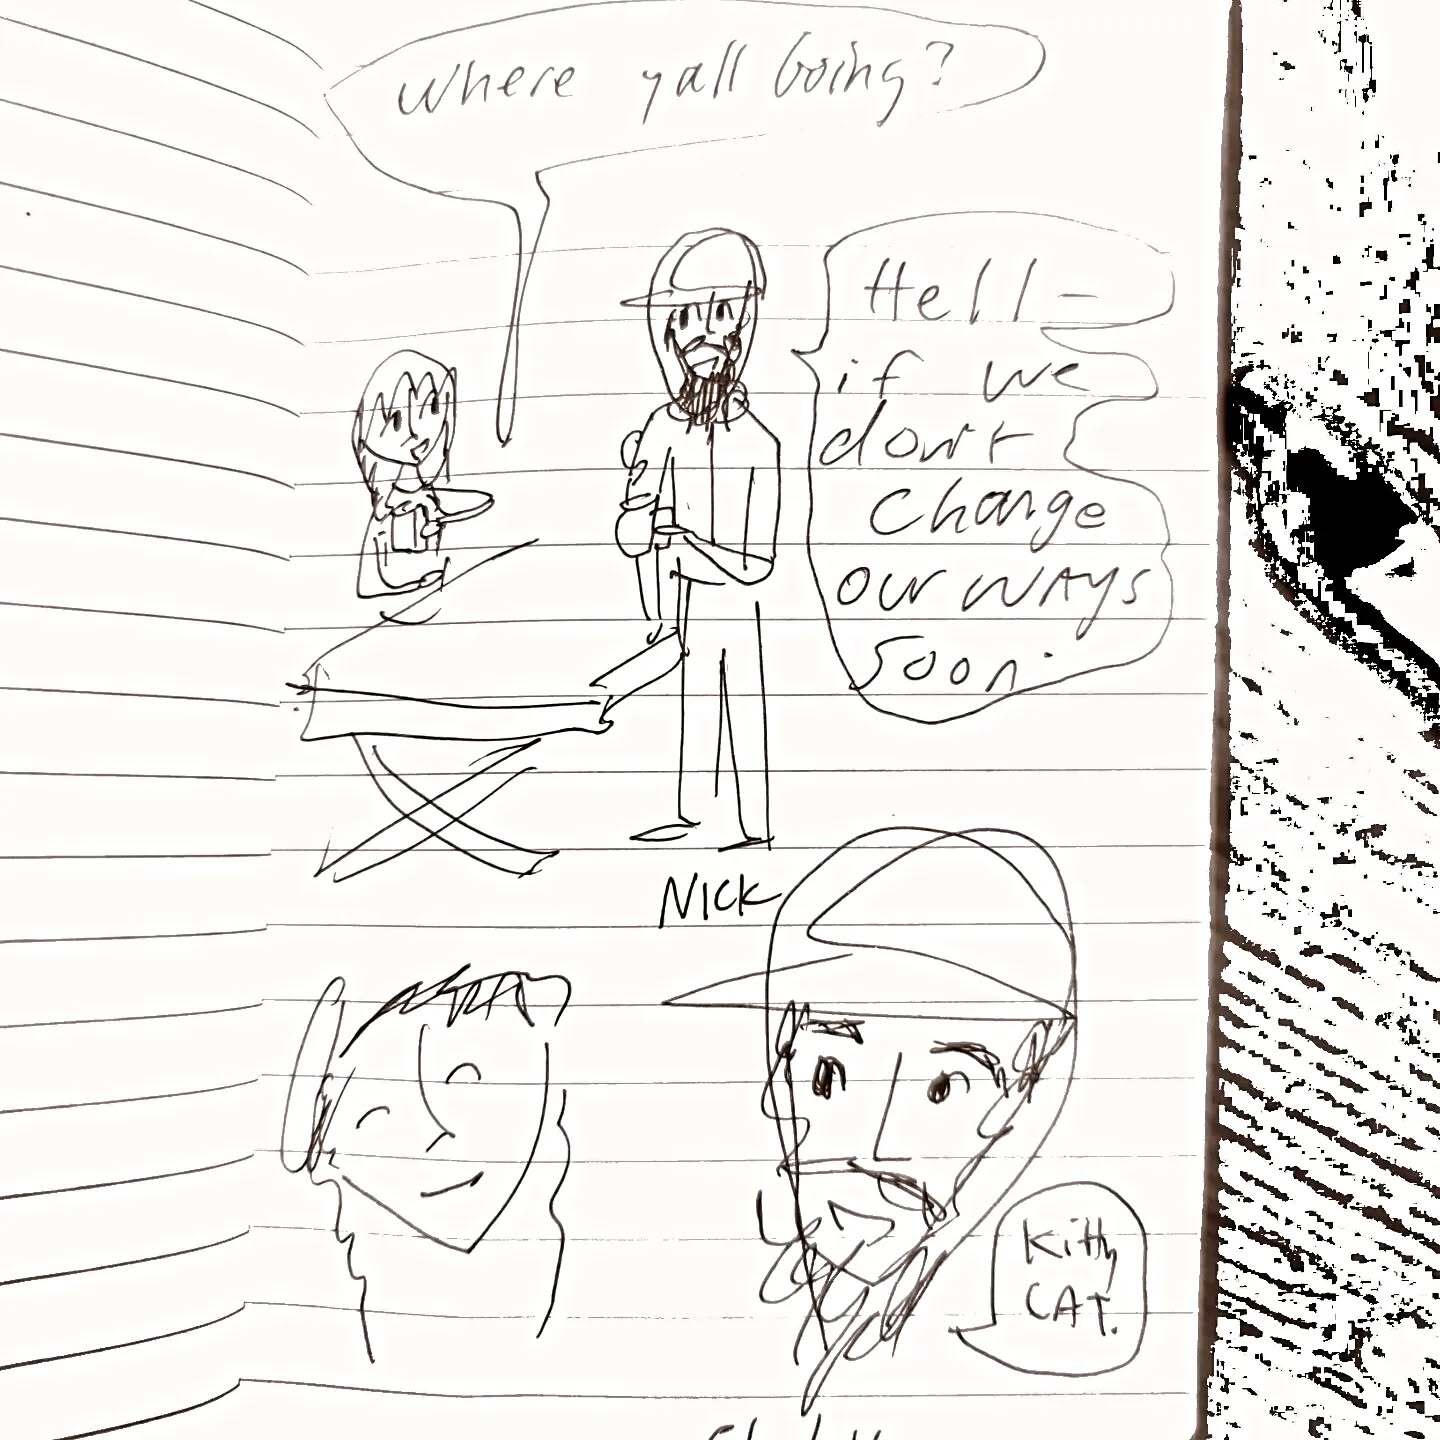 where yall Going?
Hell -
if we
don't
change
our WAYS
soon.
NICK
Kitty
CAT.